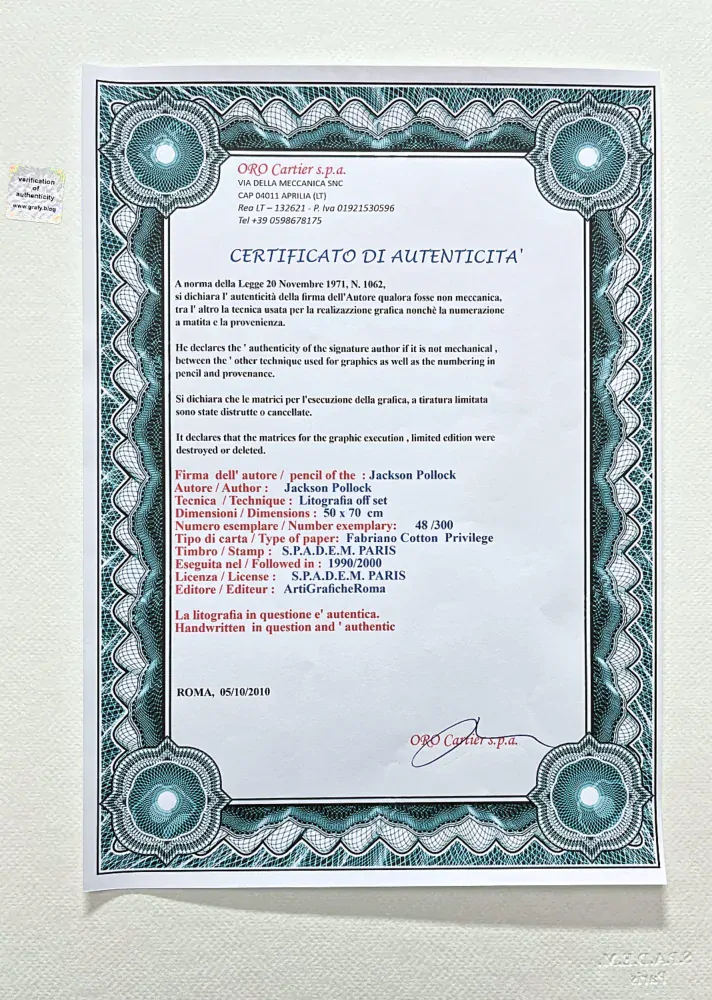 verification
of
authenticity
www.grafy.blog
ORO Cartier s.p.a.
VIA DELLA MECCANICA SNC
CAP 04011 APRILIA (LT)
Rea LT – 132621 - P. Iva 01921530596
Tel +39 0598678175
CERTIFICATO DI AUTENTICITA'
A norma della Legge 20 Novembre 1971, N. 1062,
si dichiara l' autenticità della firma dell'Autore qualora fosse non meccanica,
tra l' altro la tecnica usata per la realizazzione grafica nonchè la numerazione
a matita e la provenienza.
He declares the ' authenticity of the signature author if it is not mechanical ,
between the ' other technique used for graphics as well as the numbering in
pencil and provenance.
Si dichiara che le matrici per l'esecuzione della grafica, a tiratura limitata
sono state distrutte o cancellate.
It declares that the matrices for the graphic execution , limited edition were
destroyed or deleted.
Firma dell' autore / pencil of the : Jackson Pollock
Autore / Author : Jackson Pollock
Tecnica / Technique : Litografia off set
Dimensioni / Dimensions : 50 x 70 cm
Numero esemplare / Number exemplary: 48 /300
Tipo di carta / Type of paper: Fabriano Cotton Privilege
Timbro / Stamp : S.P.A.D.E.M. PARIS
Eseguita nel / Followed in : 1990/2000
Licenza / License : S.P.A.D.E.M. PARIS
Editore / Editeur : ArtiGraficheRoma
La litografia in questione e' autentica.
Handwritten in question and ' authentic
ROMA, 05/10/2010
ORO Cartier s.p.a.
S.P.A.D.E.M.
Paris